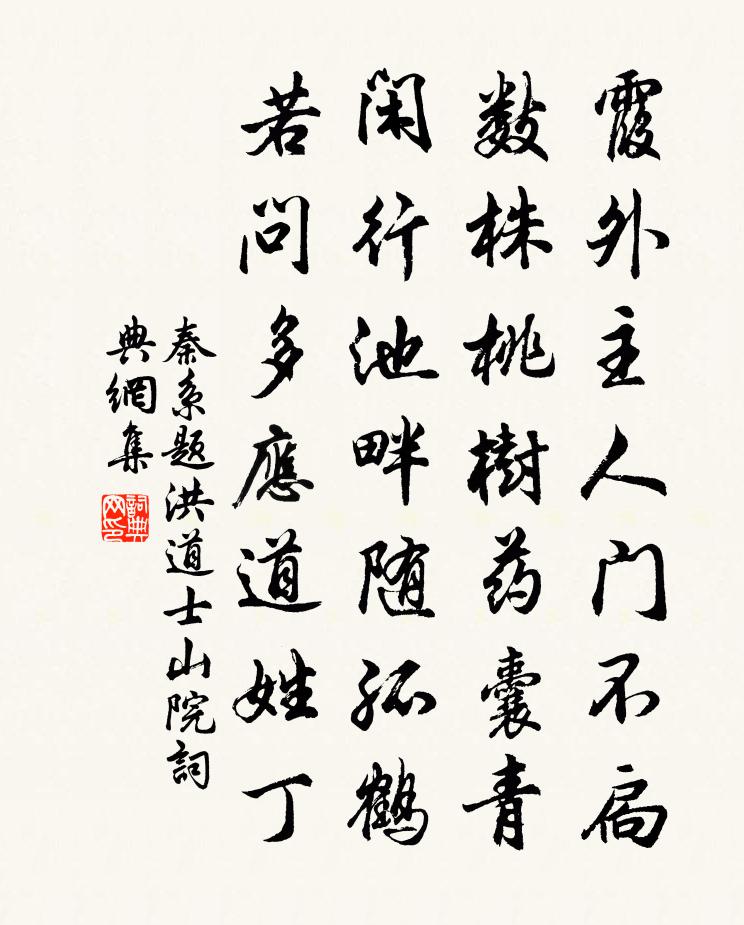 霞外主人门不扃
数株桃樹药囊青
閑行池畔随孤鶴
若问多應道姓丁
秦系题洪道士山院詞
典網集
詞典
网印